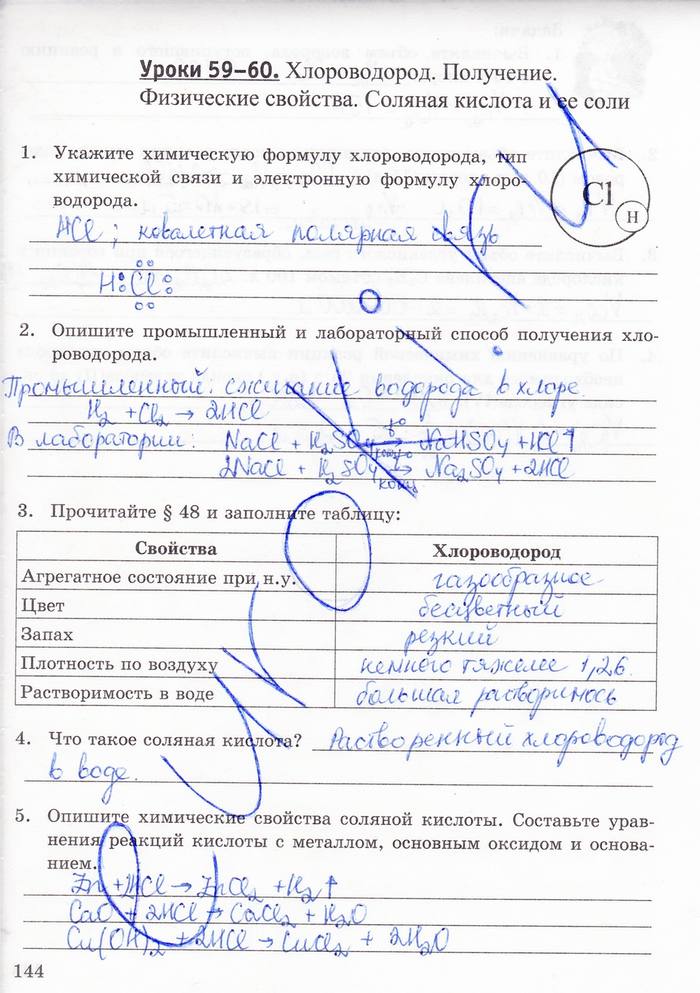 Уроки 59–60. Хлороводород. Получение.
Физические свойства. Соляная кислота и ее соли
1. Укажите химическую формулу хлороводорода, тип
химической связи и электронную формулу хлоро-
водорода.
Cl
H
HCl; ковалетная полярная связь
H:Cl:
2. Опишите промышленный и лабораторный способ получения хло-
роводорода.
Промышленный: сжигание водорода в хлоре.
H2 + Cl2 → 2HCl
В лаборатории: NaCl + H2SO4 → NaHSO4 + HCl↑
2NaCl + H2SO4 → Na2SO4 + 2HCl
конц
3. Прочитайте § 48 и заполните таблицу:
Свойства Хлороводород
Агрегатное состояние при н.у. газообразное
Цвет бесцветный
Запах резкий
Плотность по воздуху немного тяжелее 1,26
Растворимость в воде большая растворимось
4. Что такое соляная кислота? Растворенный хлороводород
в воде.
5. Опишите химические свойства соляной кислоты. Составьте урав-
нения реакций кислоты с металлом, основным оксидом и основа-
нием.
Zn + 2HCl → ZnCl2 + H2↑
CaO + 2HCl → CaCl2 + H2O
Cu(OH)2 + 2HCl → CuCl2 + 2H2O
144